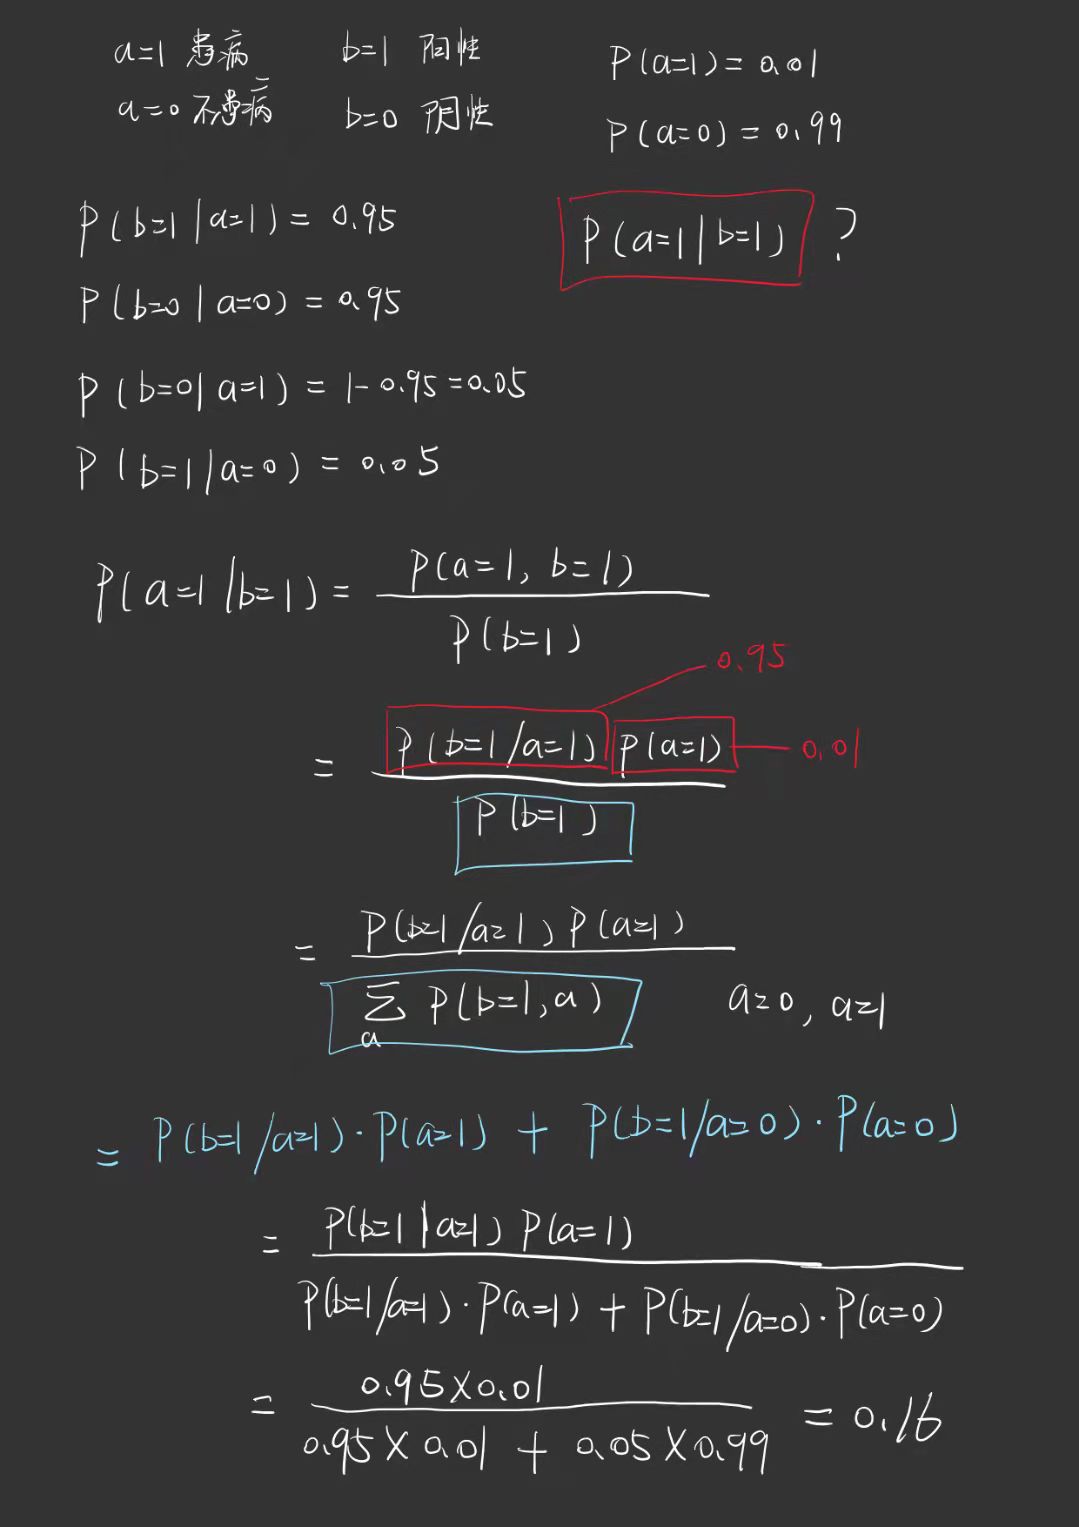 a=1 患病 b=1 阳性 P(a=1)=0.01
a=0 不患病 b=0 阴性 P(a=0)=0.99
P(b=1|a=1)=0.95 P(a=1|b=1) ?
P(b=0|a=0)=0.95
P(b=0|a=1)=1-0.95=0.05
P(b=1|a=0)=0.05
P(a=1|b=1)= P(a=1, b=1)
P(b=1)
0.95
= P(b=1/a=1) P(a=1) 0.01
P(b=1)
= P(b=1/a=1) P(a=1)
∑ P(b=1,a) a=0, a=1
a
= P(b=1/a=1)·P(a=1) + P(b=1/a=0)·P(a=0)
= P(b=1|a=1) P(a=1)
P(b=1/a=1)·P(a=1) + P(b=1/a=0)·P(a=0)
= 0.95×0.01 = 0.16
0.95×0.01 + 0.05×0.99